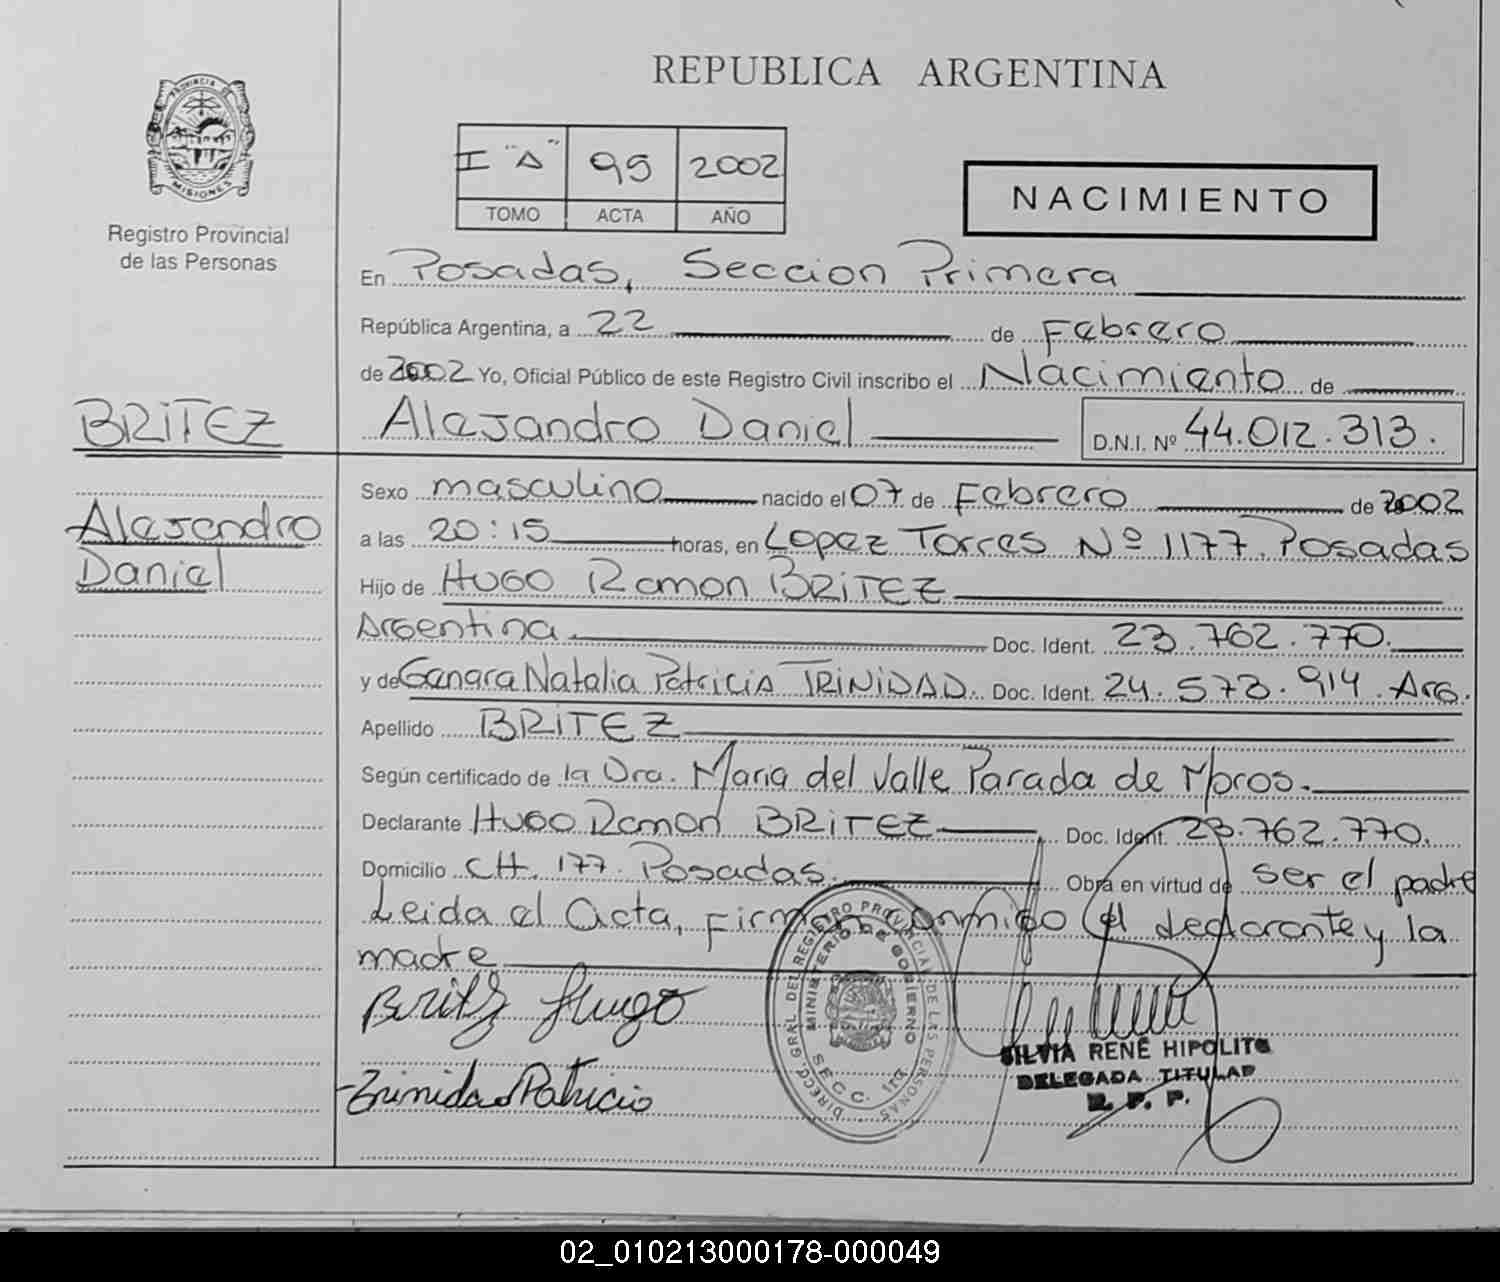 REPUBLICA ARGENTINA
PROVINCIA DE
MISIONES
Registro Provincial
de las Personas
I "A" 95 2002
TOMO ACTA AÑO
NACIMIENTO
En Posadas, Seccion Primera
República Argentina, a 22 de Febrero
de 2002 Yo, Oficial Público de este Registro Civil inscribo el Nacimiento de
BRITEZ
Alejandro Daniel D.N.I. Nº 44.012.313.
Alejandro
Daniel
Sexo masculino nacido el 07 de Febrero de 2002
a las 20:15 horas, en Lopez Torres Nº 1177. Posadas
Hijo de HUGO Ramon BRITEZ
Argentina Doc. Ident. 23.762.770.
y de Genara Natalia Patricia TRINIDAD. Doc. Ident. 24.573.914. Arg.
Apellido BRITEZ
Según certificado de la Dra. Maria del Valle Parada de Moros.
Declarante HUGO Ramon BRITEZ Doc. Ident. 23.762.770.
Domicilio CH. 177. Posadas. Obra en virtud de ser el padre
Leida el acta, Firman conmigo el declarante y la
madre
Britez Hugo
Trinidad Patricia
DIRECC. GRAL. DEL REGISTRO PROVINCIAL DE LAS PERSONAS
MINISTERIO DE GOBIERNO
SECC. 1ra
SILVIA RENÉ HIPOLITO
DELEGADA TITULAR
R. P. P.
02_010213000178-000049